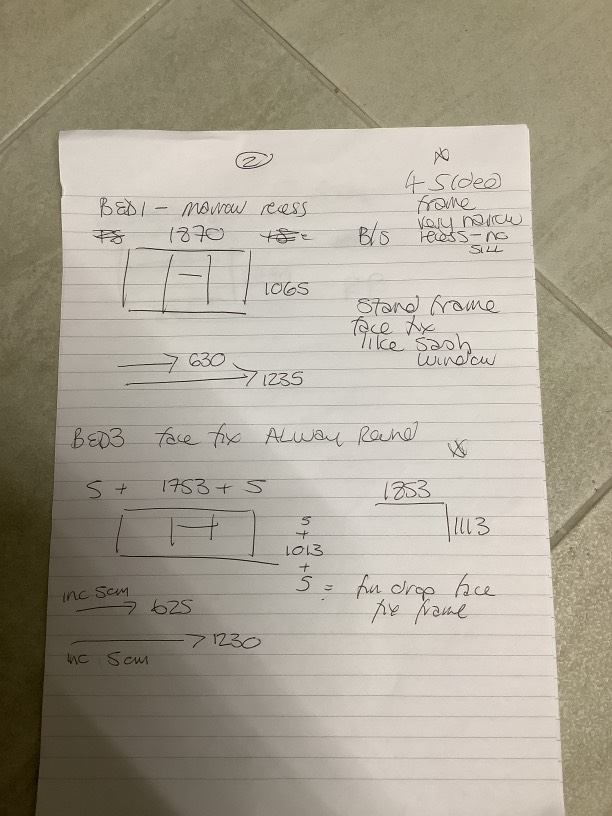 2
BED1 - narrow recess
1870
B/S
1065
4 Sided
frame
very narrow
recess - no
SILL
Stand frame
face fix
like sash
window
630
1235
BED3 face fix ALWAY Round
5 + 1753 + 5
5
+
1013
+
5 =
1853
1113
drop face
fix frame
inc 5cm
625
1230
inc 5cm